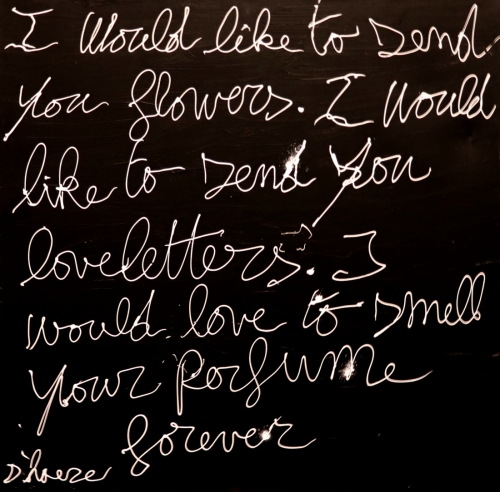 I would like to send
you flowers. I would
like to send you
loveletters. I
would love to smell
your perfume
forever
D'hoeze